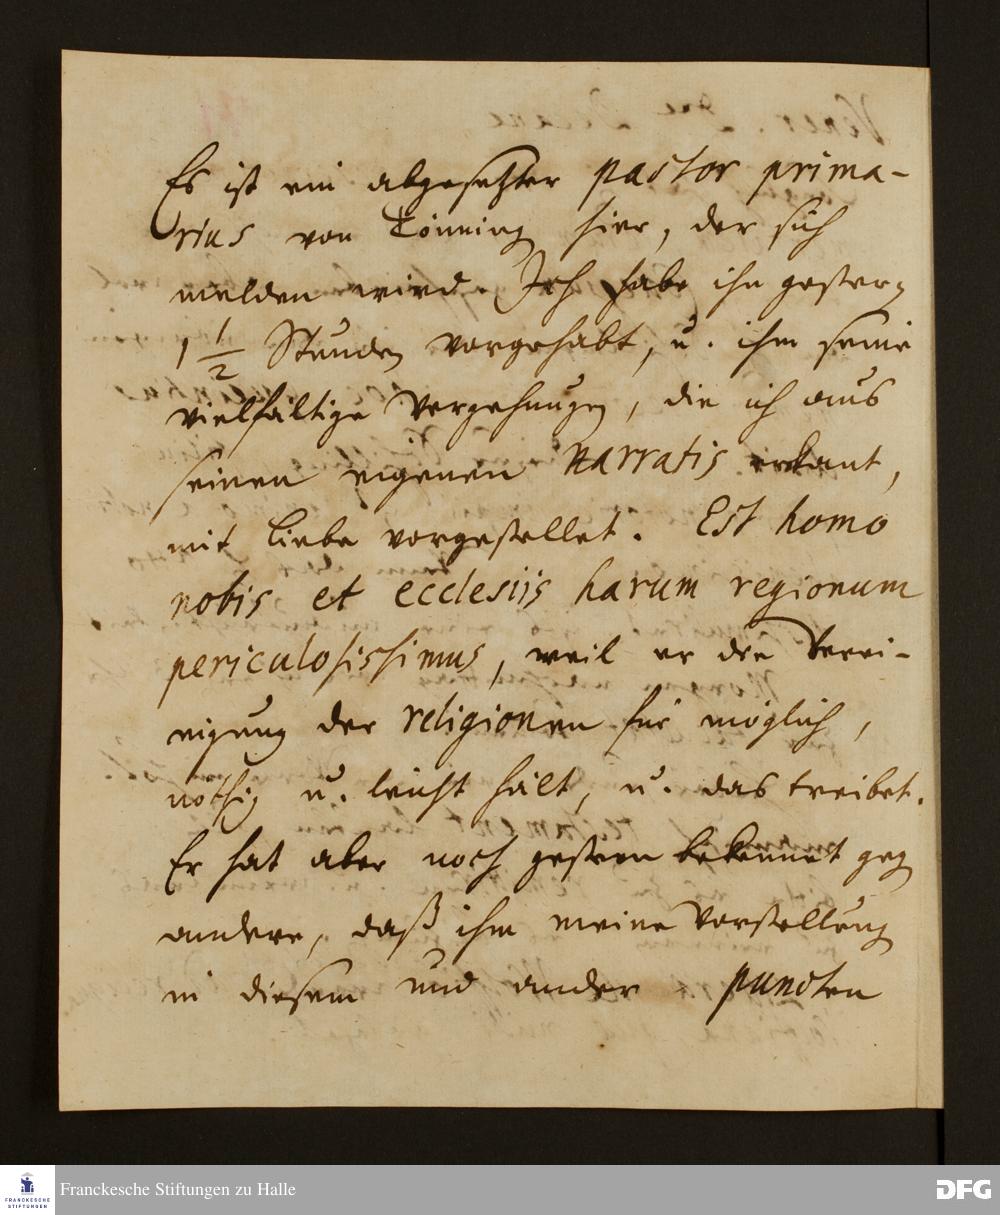 Es ist ein abgesetzter pastor prima-
rius von Tönning hier, der sich
melden wird. Ich habe ihn gestern
1 1/2 Stunden vorgehabt, u. ihm seine
vielfältige Vergehungen, die ich aus
seinen eigenen narratis erkant,
mit Liebe vorgestellet. Est homo
nobis et ecclesiis harum regionum
periculosissimus, weil er die Verei-
nigung der religionen für möglich,
nöthig u. leicht hält, u. das treibet.
Er hat aber noch gestern bekennet geg
andere, daß ihm meine Vorstellung
in diesem und ander puncten
Franckesche Stiftungen zu Halle
FRANCKESCHE
STIFTUNGEN
DFG